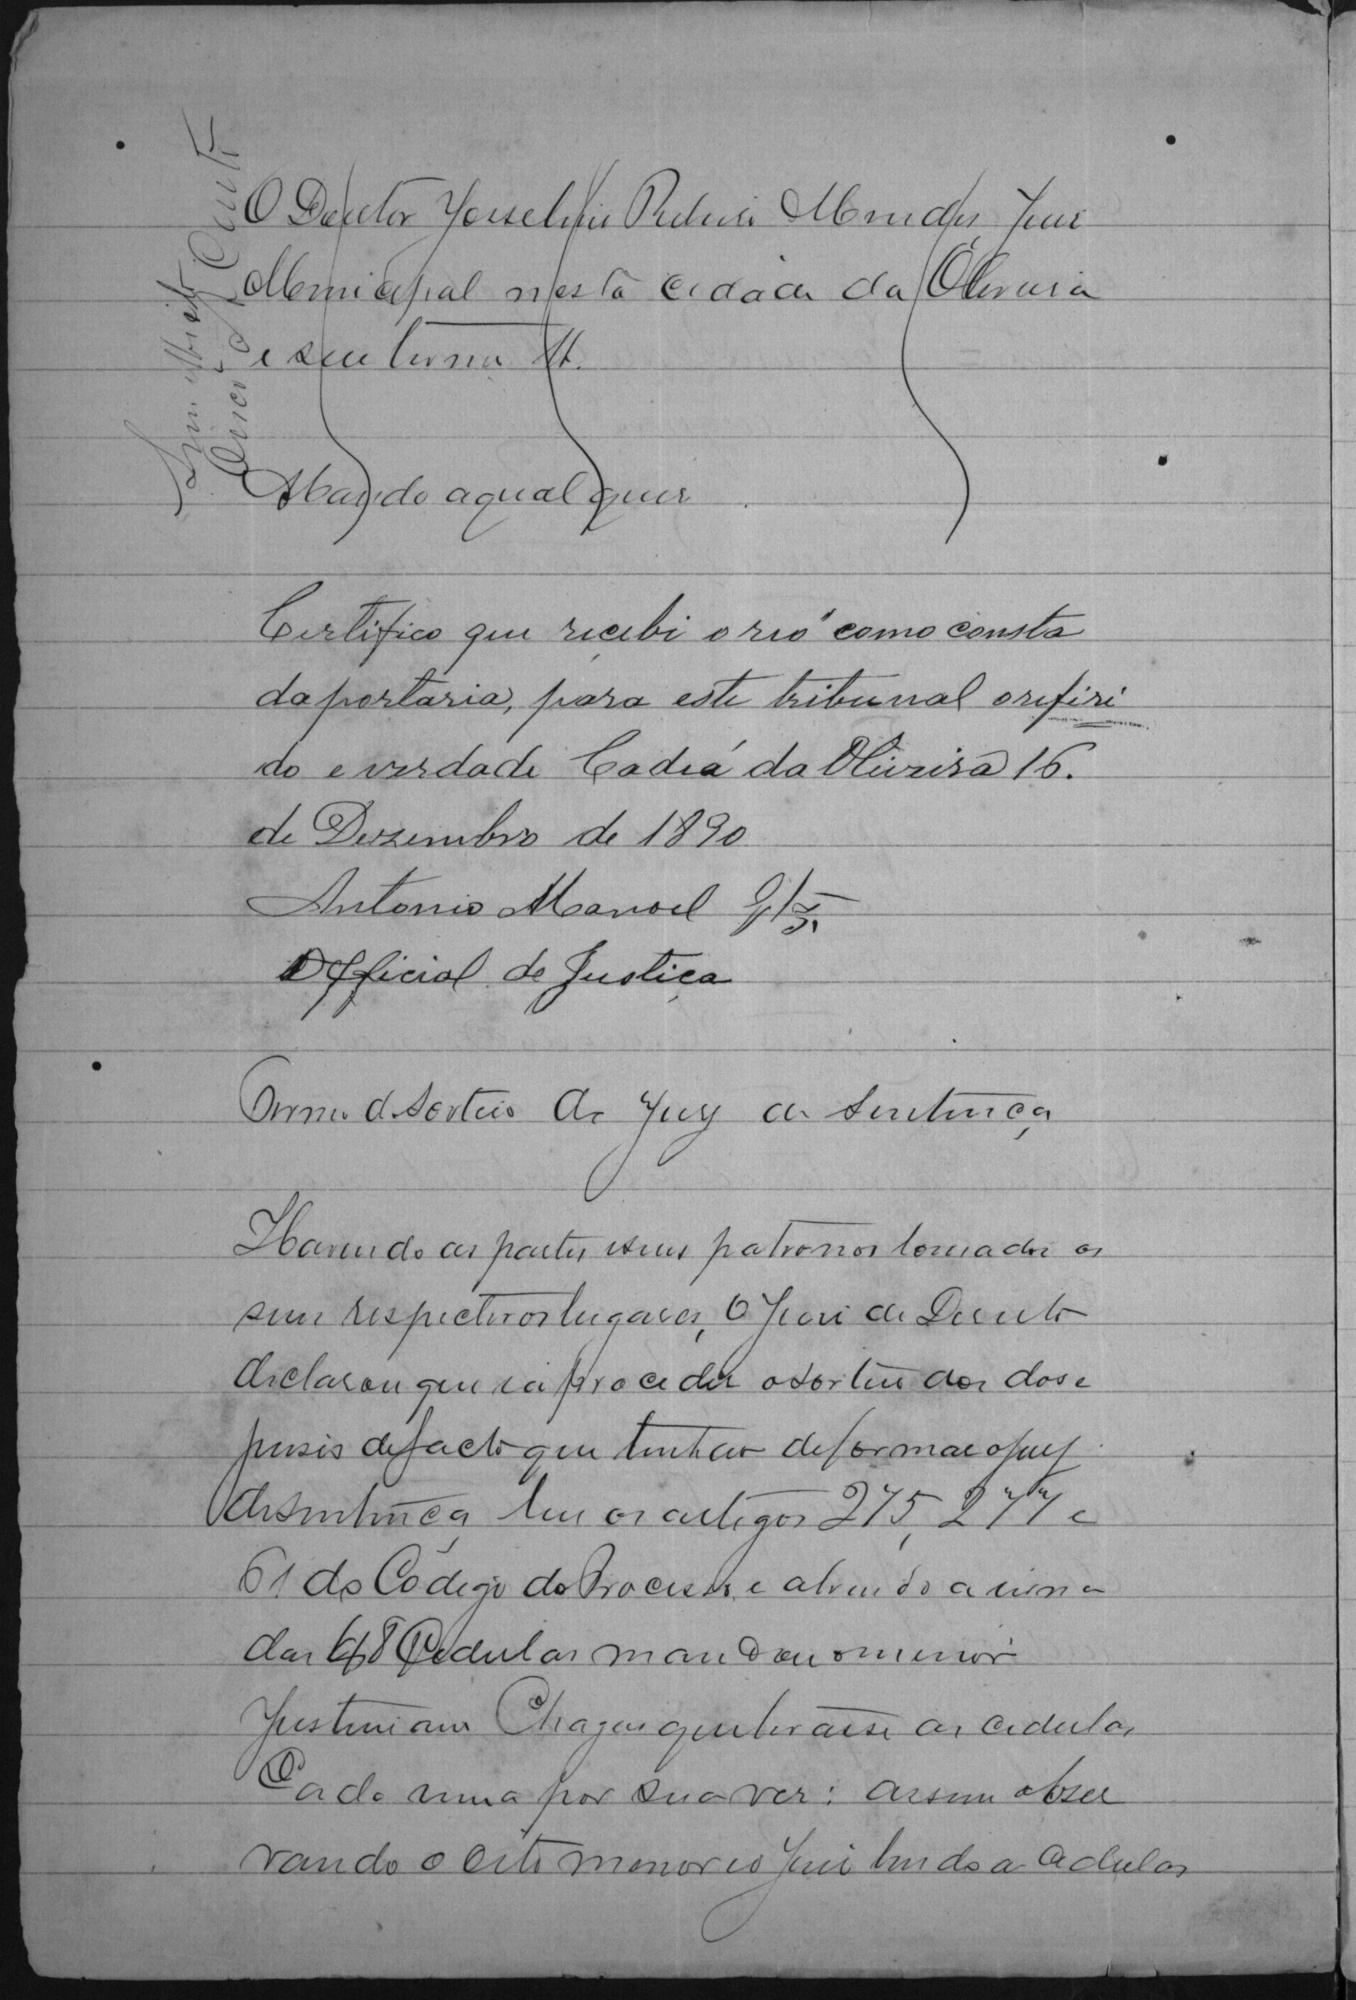 O Doutor Josselino Ribeiro Mendes, Juiz
Municipal nesta cidade da Oliveira
e seu termo Stª.
Mando a qualquer
Certifico que recebi o reo como consta
da portaria, para este tribunal o refiri
do e verdade Cadeia da Oliveira 16.
de Dezembro de 1890
Antonio Manoel
Official de Justiça
Termo de Sorteio do Jury de Sentença
Havendo as partes e seus patronos tomado os
seus respectivos lugares, O Juiz de Direito
declarou que ia proceder o sorteio dos dose
jusis de facto que tinhão de formar o jury
de sentença, leu os artigos 275, 277 e
61 do Código do Processo, e abrindo a urna
das 48 Cedulas mandou o menor
Justiniano Chagas que tirasse as cedulas
Cada uma por sua vez: assim obser
vando o dito menor e o Juiz lendo as cedulas